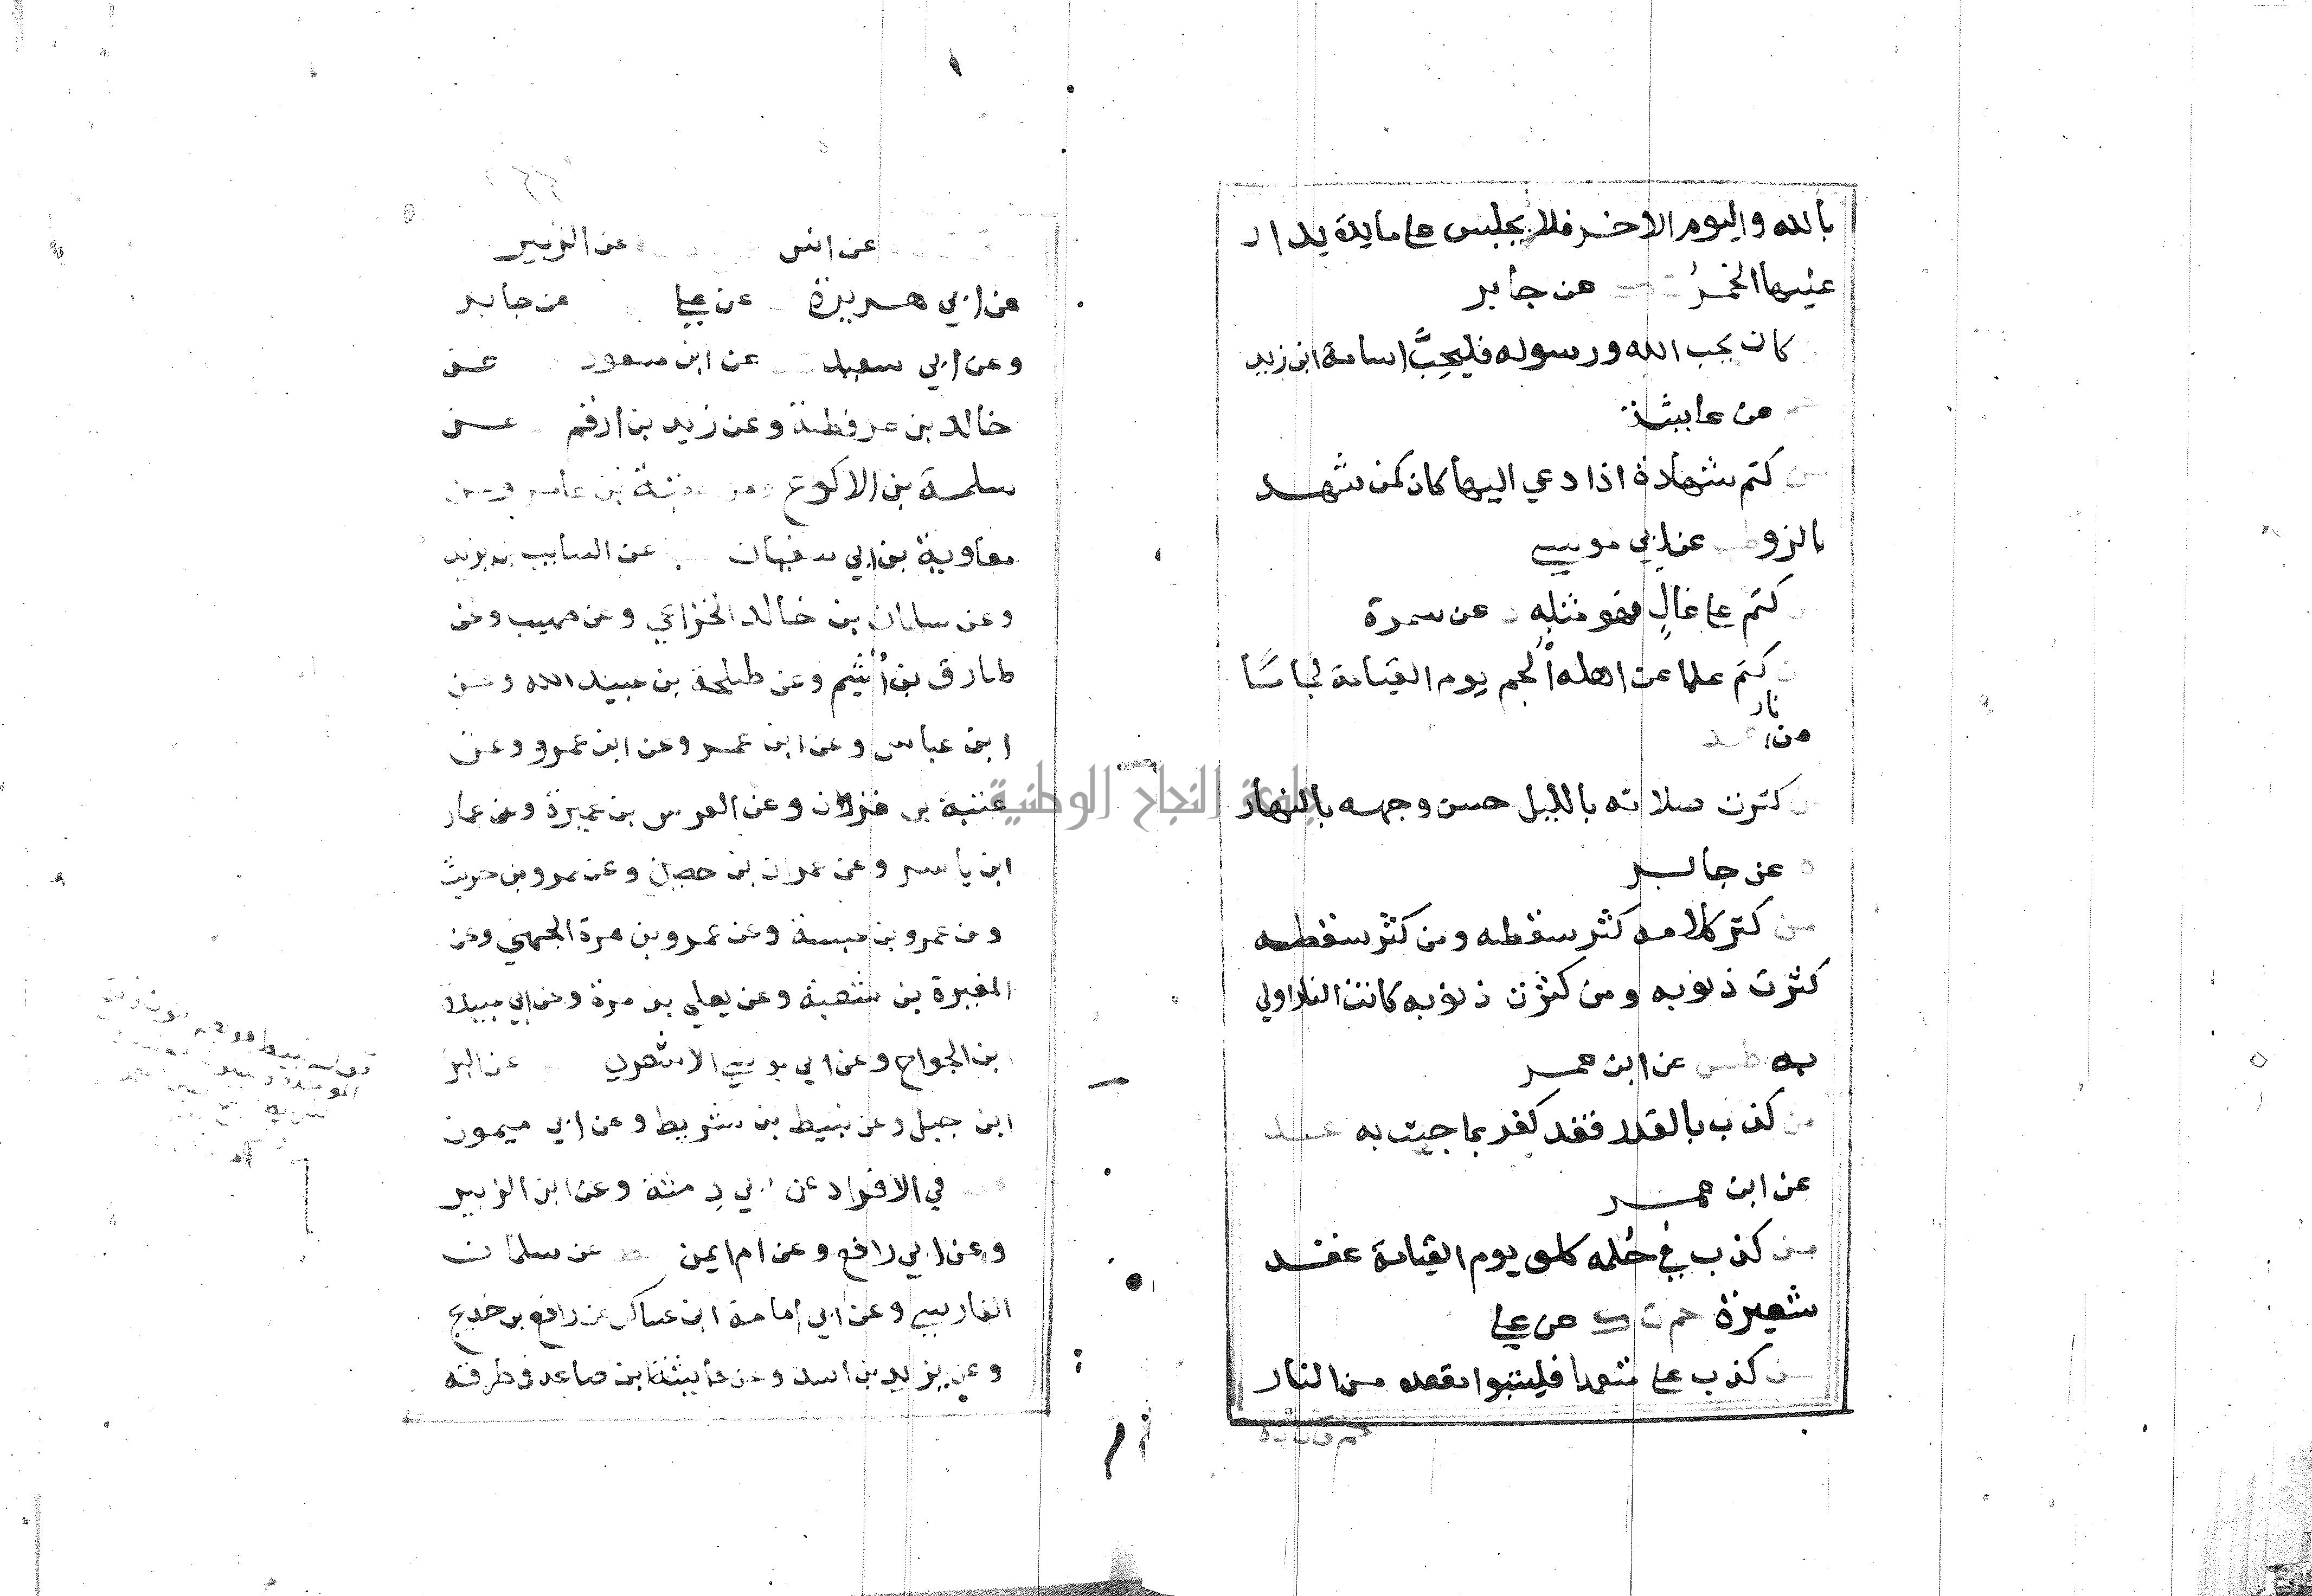 بالله واليوم الاخر فلا يجلس على مايدة يدار
عليها الخمر ت ك عن جابر
كان يحب الله ورسوله فليحب اسامة ابن زيد
حم عن عايشة
من كتم شهادة اذا دعي اليها كان كمن شهد
بالزور طب عن ابي موسى
من كتم على غال فهو مثله د عن سمرة
من كتم علما عن اهله ألجم يوم القيامة لجاما
من نار عد
من كثرت صلاته بالليل حسن وجهه بالنهار
ه عن جابر
من كثر كلامه كثر سقطه ومن كثر سقطه
كثرت ذنوبه ومن كثرت ذنوبه كانت النار اولى
به طس عن ابن عمر
من كذب بالقدر فقد كفر بما جيت به عد
عن ابن عمر
من كذب في حُلمه كلف يوم القيامة عقد
شعيرة حم ت ك عن علي
من كذب علي متعمدا فليتبوا مقعده من النار
حم ق ت ن ه
عن انس عن الزبير
عن ابي هريرة عن علي عن جابر
وعن ابي سعيد عن ابن مسعود عن
خالد بن عرفطة وعن زيد بن ارقم عن
سلمة بن الاكوع وعن عقبة بن عامر وعن
معاوية بن ابي سفيان عن السايب بن يزيد
وعن سلمان بن خالد الخزاعي وعن صهيب وعن
طارق بن أشيم وعن طلحة بن عبيد الله وعن
ابن عباس وعن ابن عمر وعن ابن عمرو وعن
عتبة بن غزوان وعن العرس بن عميرة وعن عمار
ابن ياسر وعن عمران بن حصين وعن عمرو بن حريث
وعن عمرو بن عبسة وعن عمرو بن مرة الجهني وعن
المغيرة بن شعبة وعن يعلى بن مرة وعن ابي عبيدة
ابن الجراح وعن ابي موسى الاشعري عن البر
ابن جبل وعن نبيط بن شريط وعن ابي ميمون
في الافراد عن ابي رمثة وعن ابن الزبير
وعن ابي رافع وعن ام ايمن خط عن سلمان
الفارسي وعن ابي امامة ابن عساكر عن رافع بن خديج
وعن يزيد بن اسد وعن عايشة ابن صاعد في طرقه
جامعة النجاح الوطنية